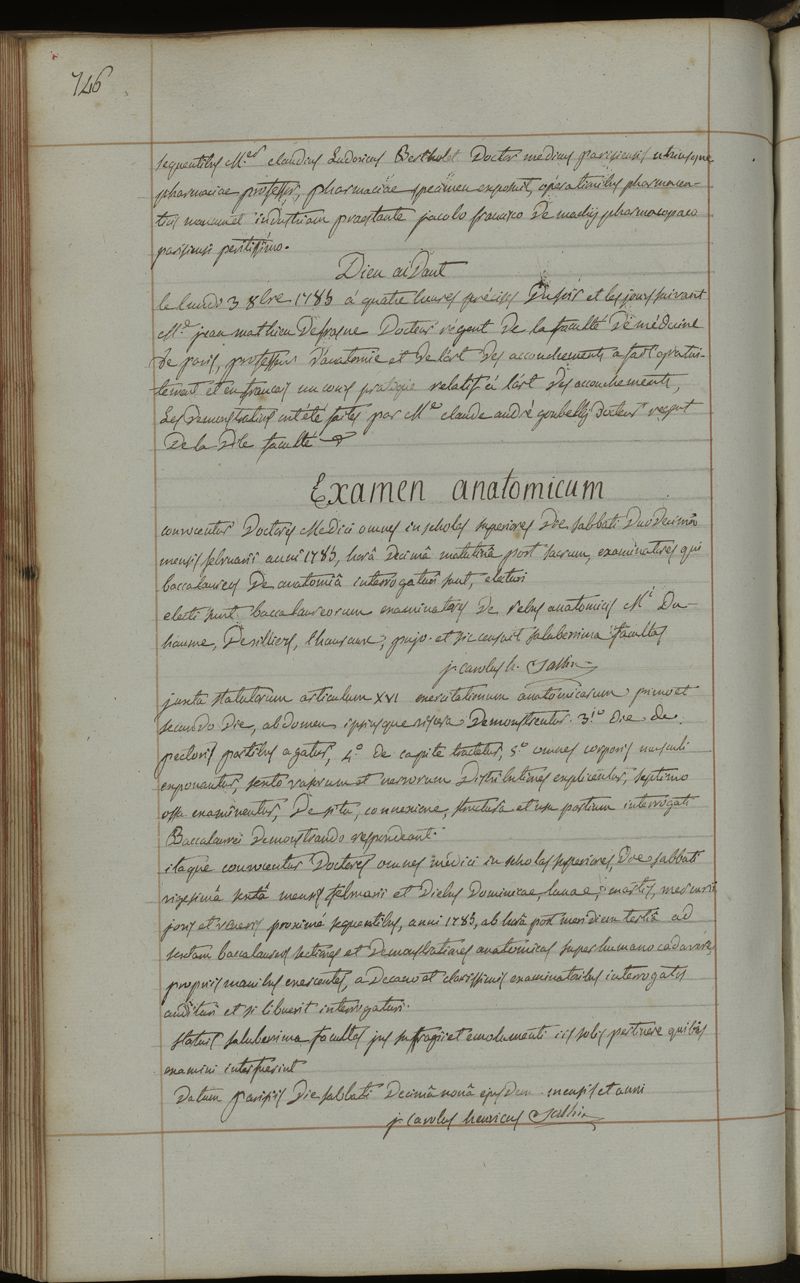 746
sequentibus M.er claudius Ludovicus Bertholet Doctor medicus parisiensis utriusque
pharmaciae professor, pharmaciae specimen exponet, operationibus pharmaceu-
ticis manum et industriam praestante jacobo francisco De machy pharmacopaeo
parisiensi peritissimo.
Dieu aidant
le lundi 3 8bre 1785 à quatre heures précises Du soir et les jours suivant
M.e jean mathieu Defrasne Docteur régent De la faculté De médecine
De paris, professeur D'anatomie et De l'art Des accouchements a fait gratui-
tement et en français un cours pratique relatif à l'art Des accouchements,
Les Demonstrations ont été faites par M.e claude andré goubelly Docteur regent
De la Dite faculté
Examen anatomicum
convocentur Doctores Medici omnes in scholas superiores Die sabbati Duodecimâ
mensis februarii anni 1785, horâ Decimâ matutinâ post sacrum, examinatores qui
baccalaureos De anatomiâ interrogaturi sunt, electuri
electi sunt baccalaureorum examinatores De rebus anatomicis M.i Du-
haume, Desilliers, thauraux, pujo. et sic censuit saluberrima facultas
j. carolus h. Sallin
juxta statutorum articulum XVI exercitationum anatomicarum primo et
secundo Die, abdomen ipsiusque viscera Demonstrentur. 3.io Die de
pectoris partibus agatur, 4.o de capite tractetur, 5.o omnes corporis musculi
exponantur, sexto vasorum et nervorum Distributiones explicentur, septimo
ossa examinentur, De situ, connexione, structurâ et usu partium interrogati
Baccalaurei Demonstrando respondeant.
itaque convocentur Doctores omnes medici in scholas superiores, Die sabbati
vigesimâ sextâ mensis februarii et Diebus Dominicae, lunae, martis, mercurii
jovis et veneris proximé sequentibus, anni 1785, ab horâ post meridiem tertiâ ad
sextam baccalaureos sectiones et Demonstrationes anatomicas super humano cadavere,
propriis manibus exercentes, a Decano et clarissimis examinatoribus interrogatos
audituri et si libuerit interrogaturi.
Statuit saluberrima facultas jus suffragii et emolumenti iis solis pertinere qui his
examini interfuerint
Datum parisiis Die sabbati Decimâ nonâ ejusdem mensis et anni
j. Carolus henricus Sallin